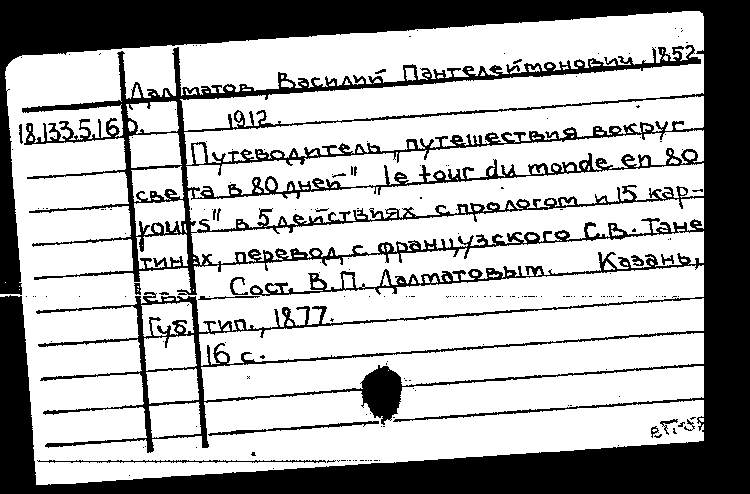 Далматов, Василий Пантелеймонович, 1852-
18.133.5.16 б. 1912.
Путеводитель „путешествия вокруг
света в 80 дней" „le tour du monde en 80
yours" в 5 действиях с прологом и 15 кар-
тинах, перевод с французского С.В. Тане
ева. Сост. В.П. Далматовым. Казань,
Губ. тип., 1877.
16 с.